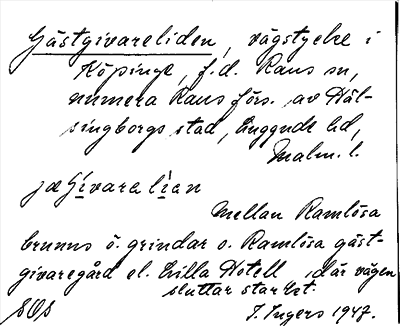 Gästgivareliden, vägstycke i
Köpinge, f.d. Raus sn,
numera Raus förs. av Häl-
singborgs stad, Luggude hd,
Malm. l.
jæGivaralian
Mellan Ramlösa
brunns ö. grindar o. Ramlösa gäst-
givaregård el. Lilla Hotell, där vägen
sluttar starkt.
SOS J. Ingers 1947.